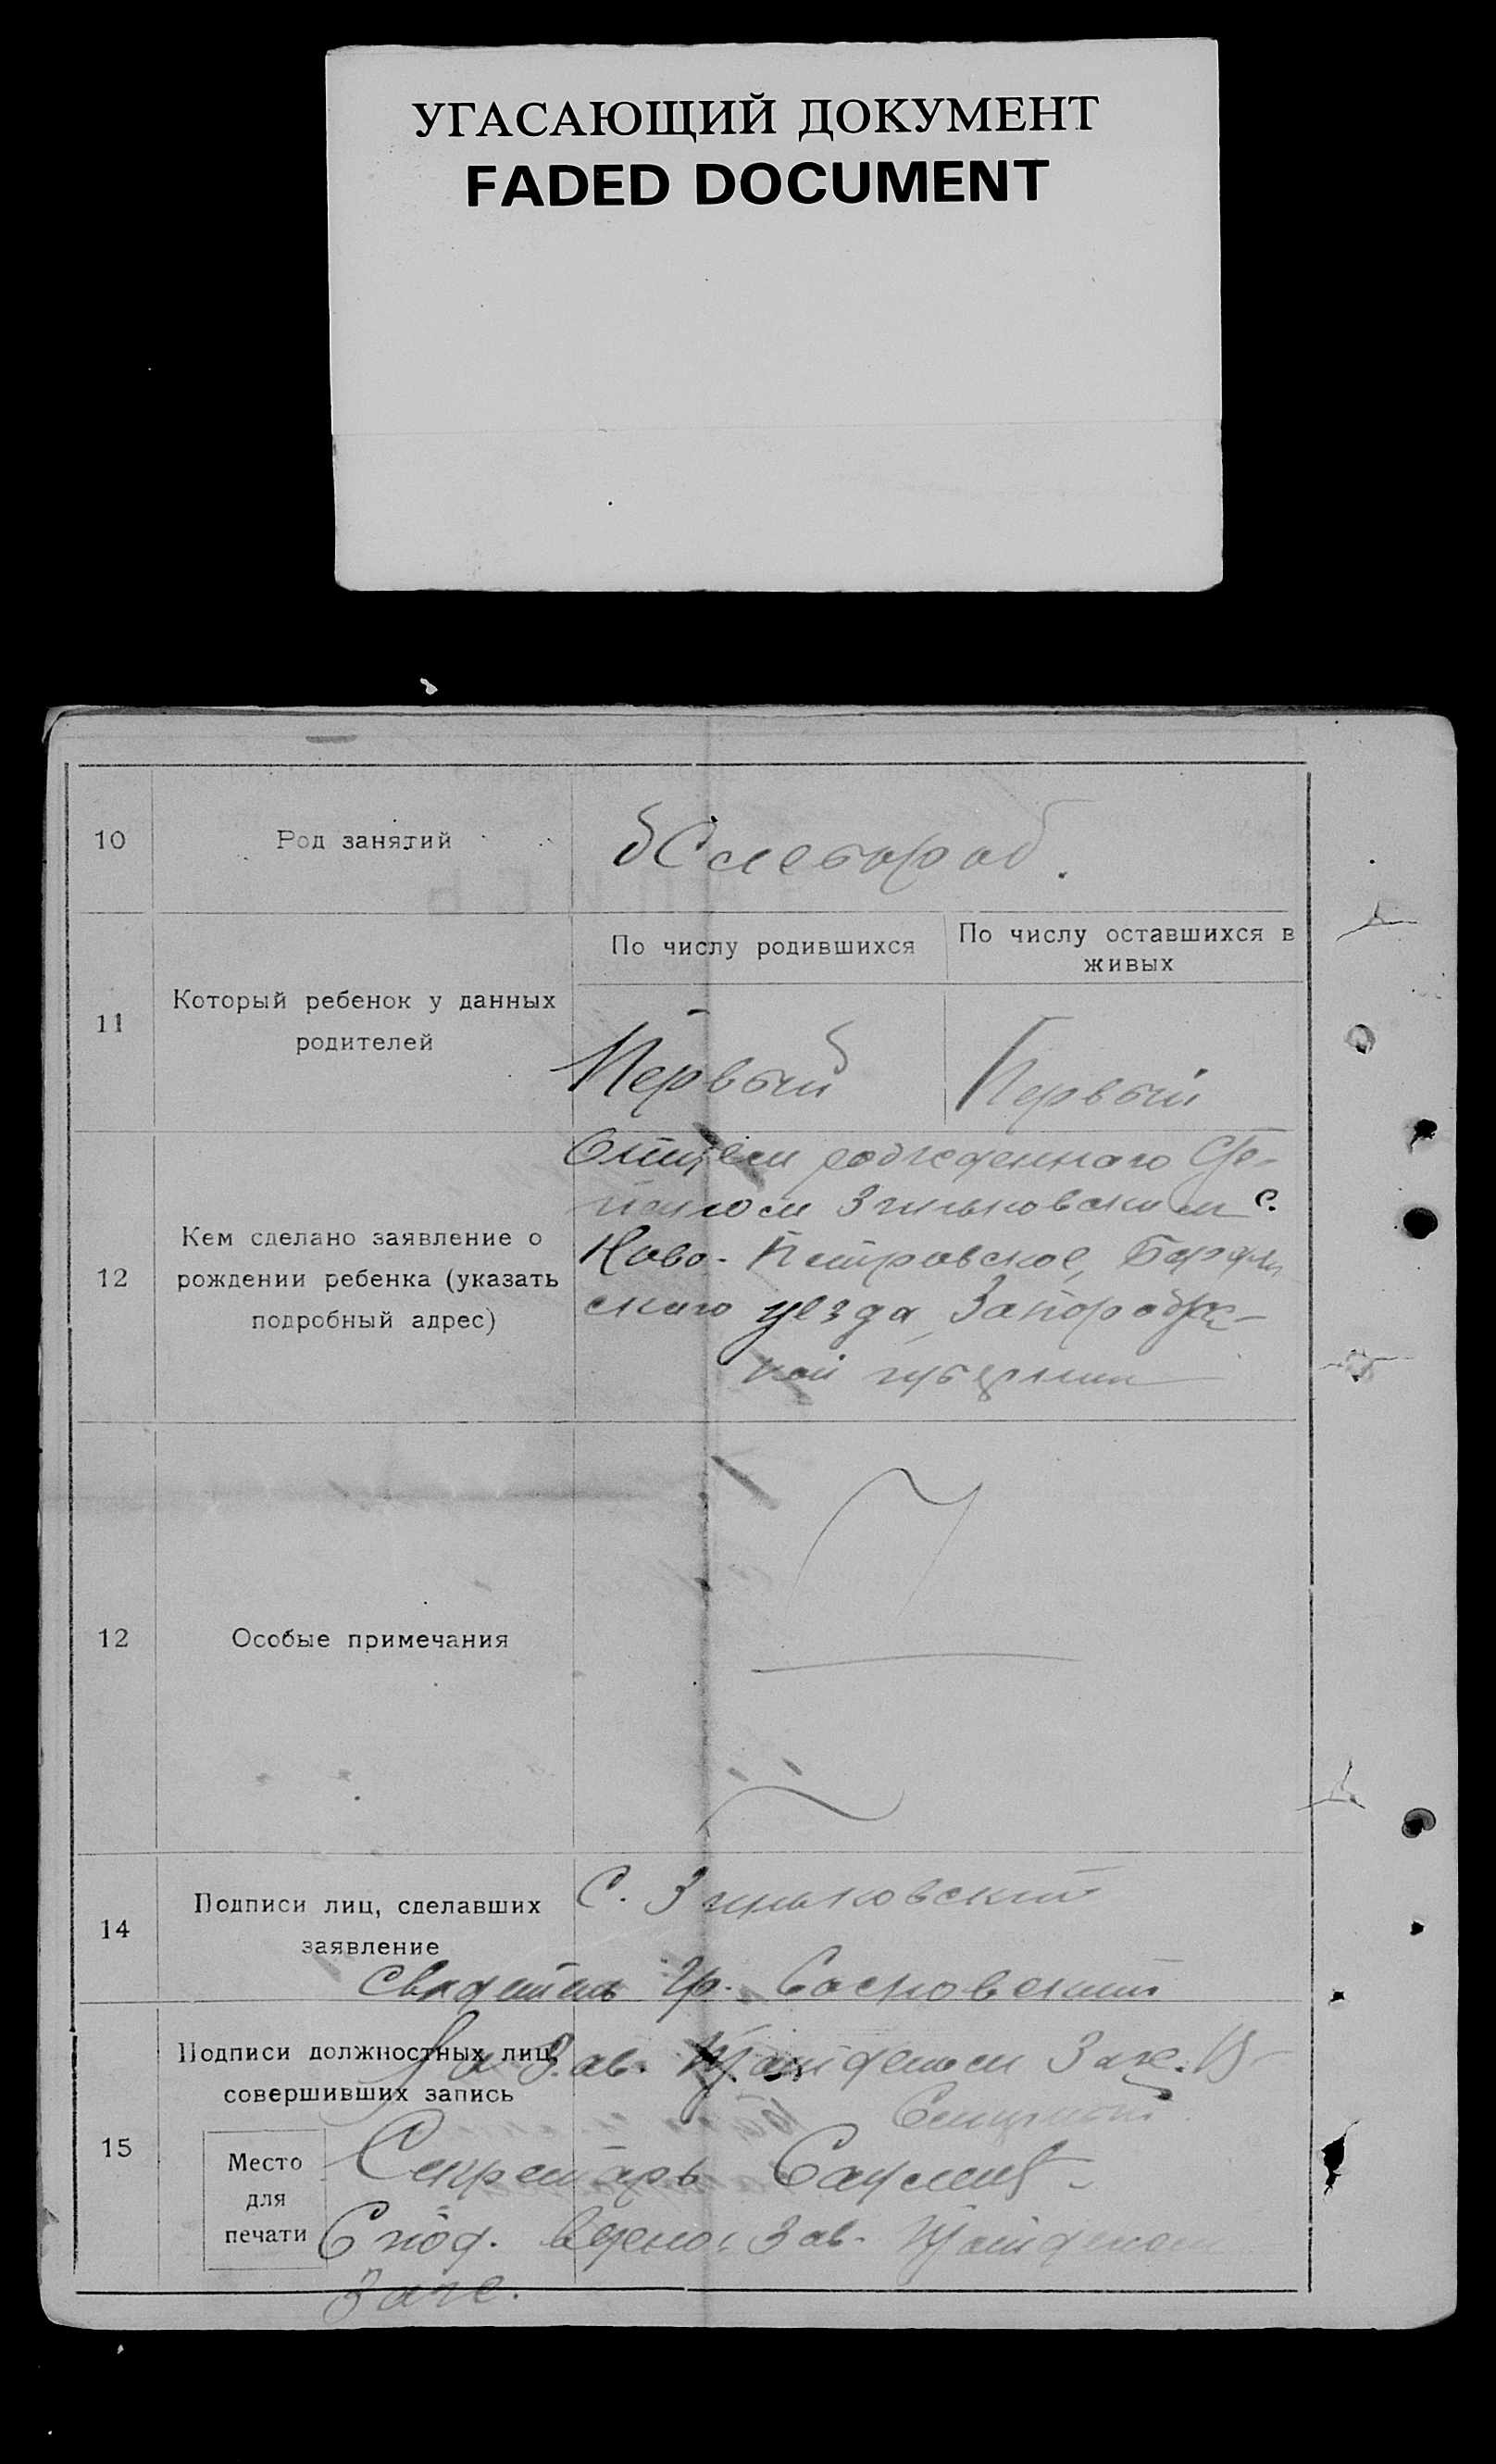 УГАСАЮЩИЙ ДОКУМЕНТ
FADED DOCUMENT
10
Род занятий
Хлебороб.
11
Который ребенок у данных
родителей
По числу родившихся
По числу оставшихся в
живых
Первый
Первый
12
Кем сделано заявление о
рождении ребенка (указать
подробный адрес)
Отцем рожденнаго Сте-
паном Зиньковским с.
Ново-Петровское, Бердян
скаго уезда, Запорож-
кой губернии
12
Особые примечания
14
Подписи лиц, сделавших
заявление
С. Зиньковский
Свидетель Гр. Сосновский
15
Подписи должностных лиц,
совершивших запись
За Зав. Загс.
Место
для
печати
Секретарь
С под. верно: Зав.
Загс.